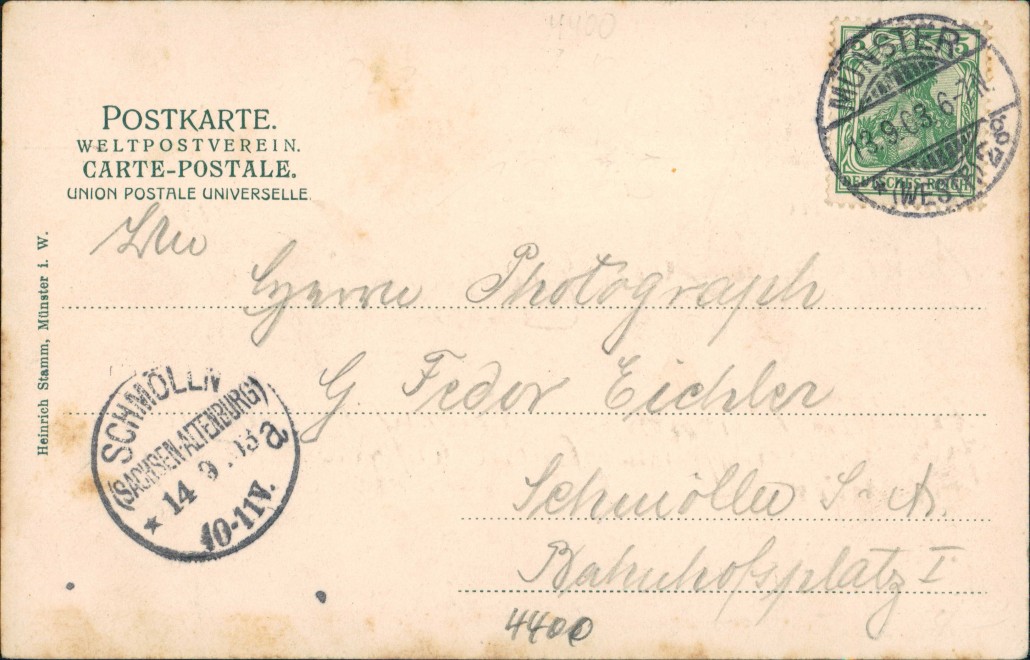 4400
POSTKARTE.
WELTPOSTVEREIN.
CARTE-POSTALE.
UNION POSTALE UNIVERSELLE.
MÜNSTER
13.9.03.6-7N.
* (WESTF.) 1
5
DEUTSCHES REICH
An
Herrn Photograph
G. Fedor Eichler
Schmölln S.-A.
Bahnhofsplatz I
4400
Heinrich Stamm, Münster i. W.
SCHMÖLLN
(SACHSEN-ALTENBURG)
* 14 9 .03 a
10-11V.